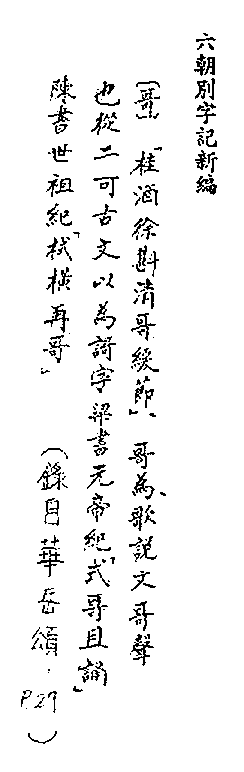 六朝別字記新編
〔哥〕「桂酒徐斟清哥緩節」、哥為、歌說文哥聲
也從二可古文以為謌字梁書元帝紀「式哥且誦」
陳書世祖紀「栻樸再哥」 (錄自華岳頌. P.29)